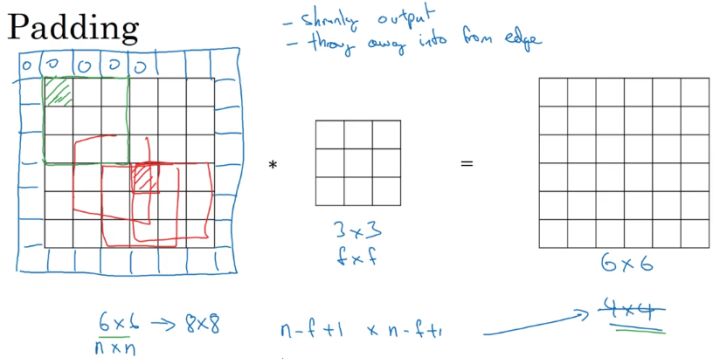 Padding
- shrinky output
- throw away info from edge
0 0 0 0 0
* =
3 × 3
f × f
6 × 6
6 × 6 → 8 × 8
n × n
n - f + 1 × n - f + 1
→ 4 × 4